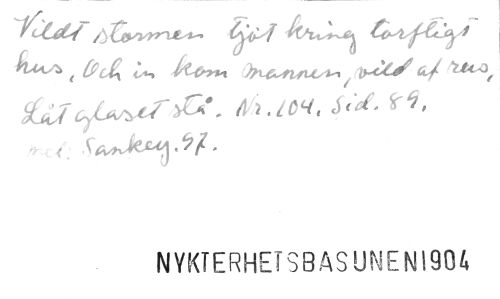 Vildt stormen tjöt kring torftigt
hus, Och in kom mannen, vild af rus,
Låt glaset stå. Nr. 104. Sid. 89.
mel: Sankey. 97.
NYKTERHETSBASUNEN 1904